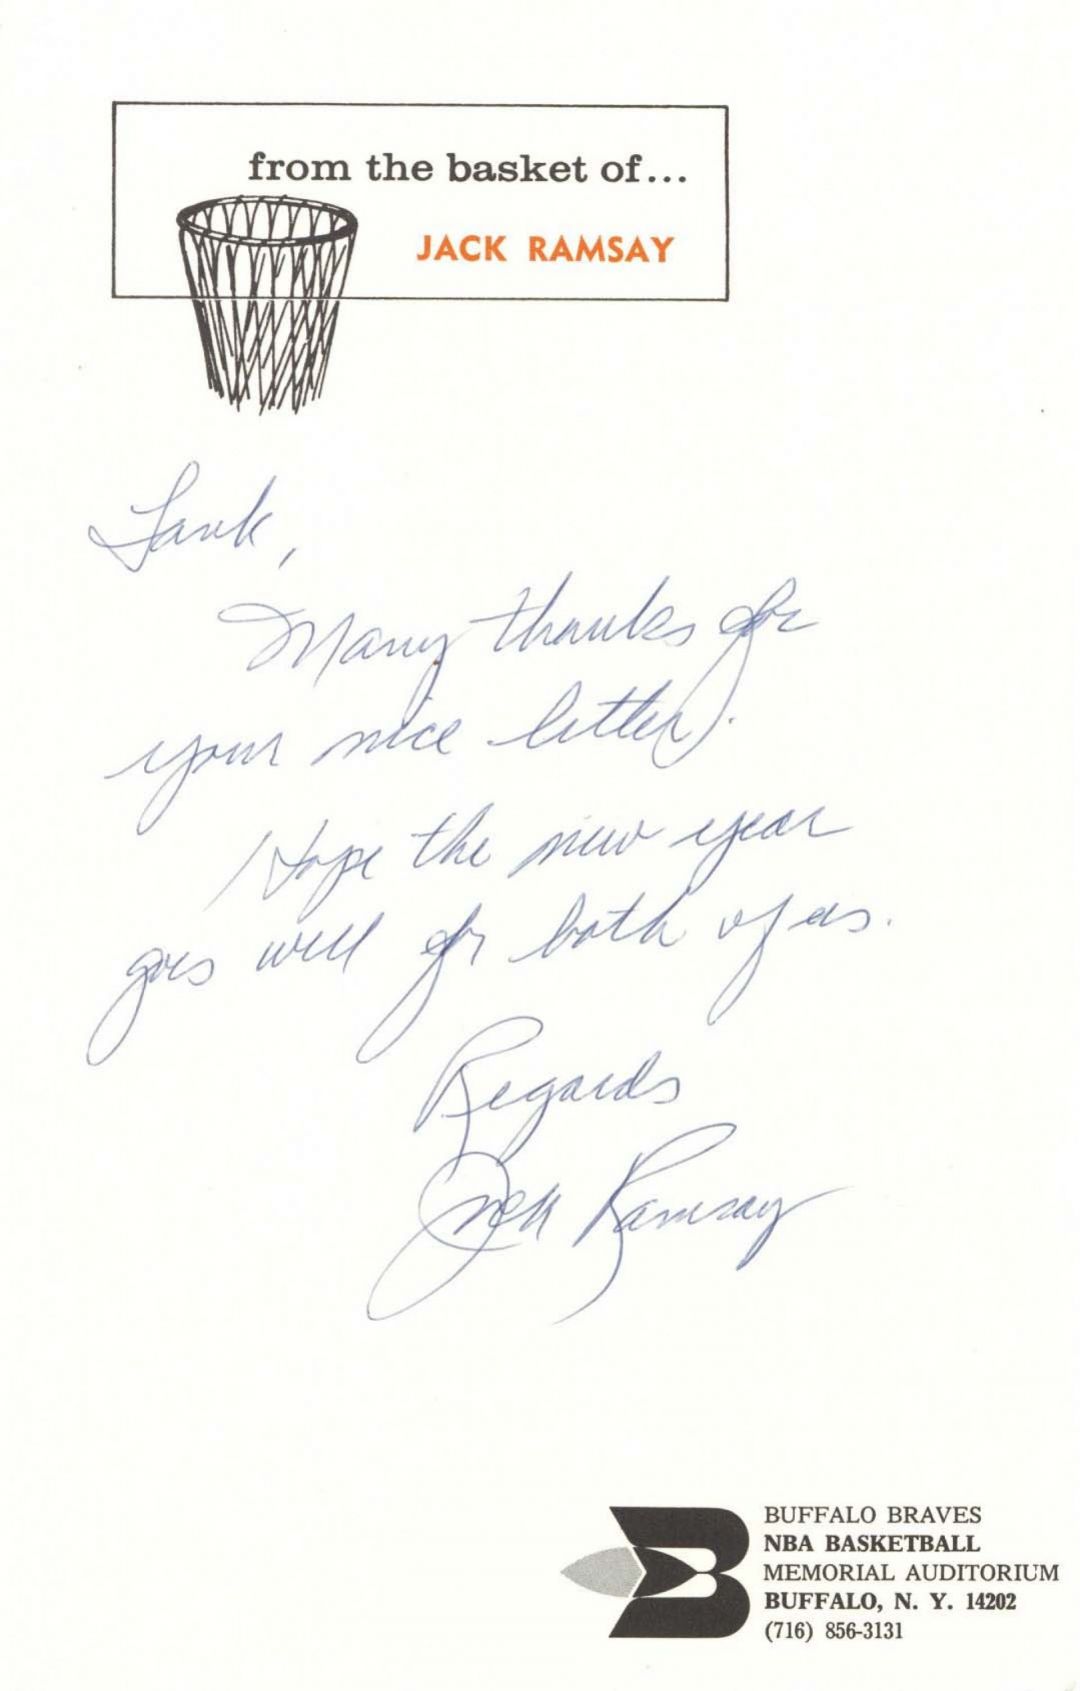 from the basket of...
JACK RAMSAY
Many thanks for
your nice letter.
Hope the new year
goes well for both of us.
Regards
Jack Ramsay
BUFFALO BRAVES
NBA BASKETBALL
MEMORIAL AUDITORIUM
BUFFALO, N. Y. 14202
(716) 856-3131